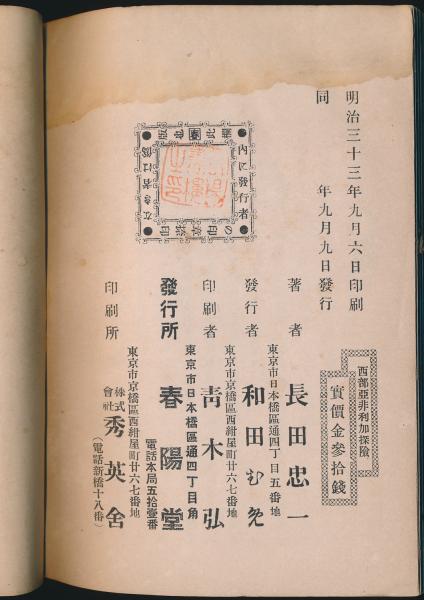 明治三十三年九月六日印刷
同年九月九日發行
西部亞非利加探險
實價金參拾錢
著者
東京市日本橋區通四丁目五番地
長田忠一
發行者
和田むめ
東京市京橋區西紺屋町廿六七番地
印刷者
靑木弘
東京市日本橋區通四丁目角
發行所
春陽堂
電話本局五拾壹番
東京市京橋區西紺屋町廿六七番地
印刷所
株式會社
秀英舍
(電話新橋十八番)
內に發行者
の印章捺印
なき者は僞
版也